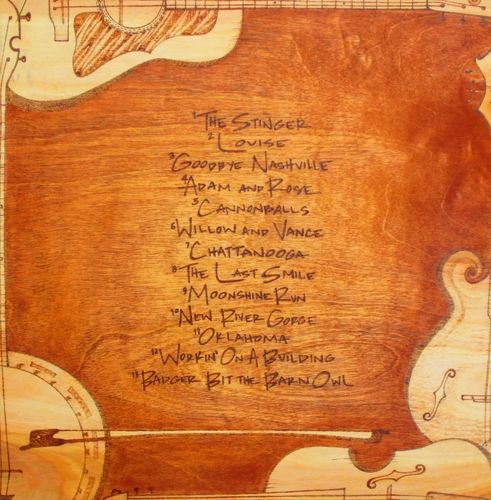 1 The Stinger
2 Louise
3 Goodbye Nashville
4 Adam and Rose
5 Cannonballs
6 Willow and Vance
7 Chattanooga
8 The Last Smile
9 Moonshine Run
10 New River Gorge
11 Oklahoma
12 Workin' On A Building
13 Badger Bit the Barn Owl